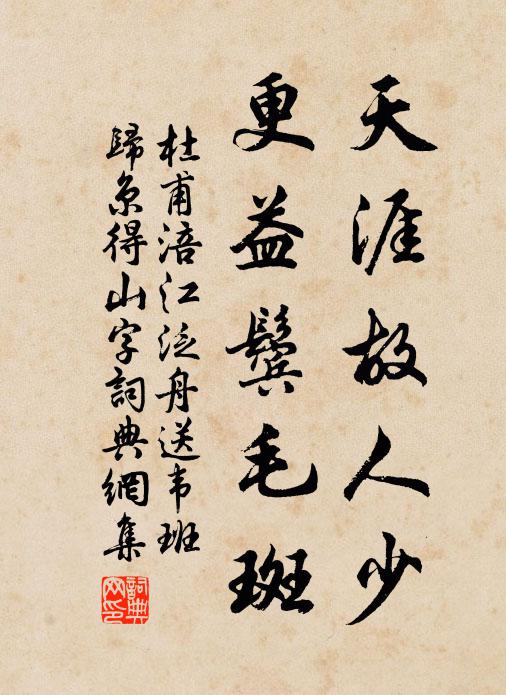 天涯故人少
更益鬢毛斑
杜甫涪江泛舟送韦班
歸京得山字詞典網集
詞典網印